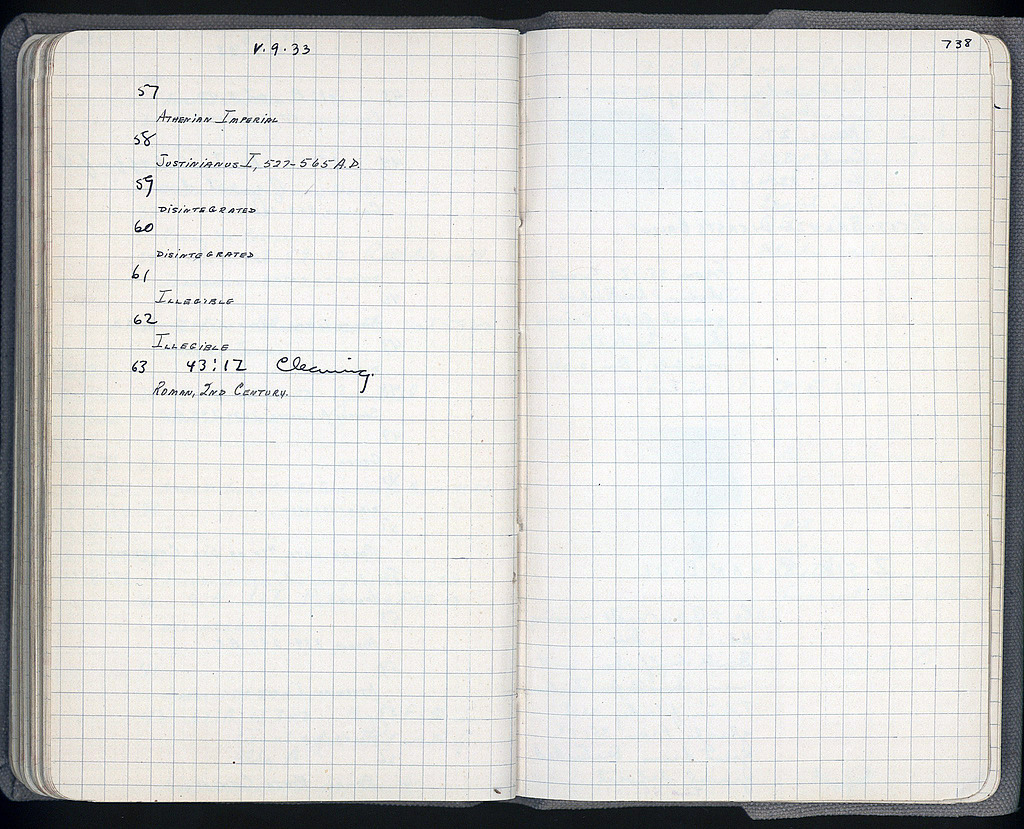 V.9.33
57
ATHENIAN IMPERIAL
58
JUSTINIANUS I, 527-565 A.D.
59
DISINTEGRATED
60
DISINTEGRATED
61
ILLEGIBLE
62
ILLEGIBLE
63 43:12 Cleaning.
ROMAN, 2ND CENTURY.
738